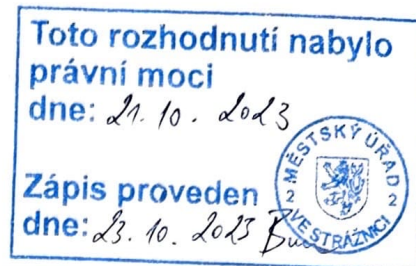 Toto rozhodnutí nabylo
právní moci
dne: 21. 10. 2023
Zápis proveden
dne: 23. 10. 2023
MĚSTSKÝ ÚŘAD
2 2
VE STRÁŽNICI